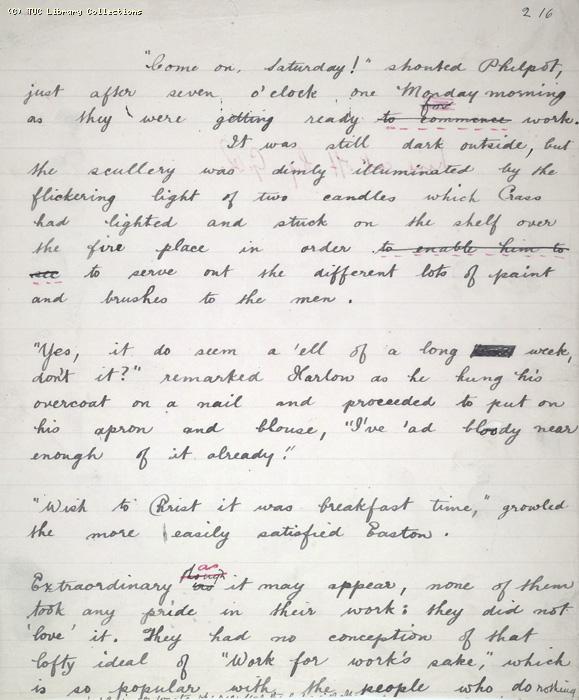 (C) TUC Library Collections
216
"Come on, Saturday!" shouted Philpot,
just after seven o'clock one Monday morning
for
as they were getting ready to commence work.
It was still dark outside, but
the scullery was dimly illuminated by the
flickering light of two candles which Crass
had lighted and stuck on the shelf over
the fire place in order to enable him to
see to serve out the different lots of paint
and brushes to the men.
"Yes, it do seem a 'ell of a long week,
don't it?" remarked Harlow as he hung his
overcoat on a nail and proceeded to put on
his apron and blouse, "I've 'ad bloody near
enough of it already."
"Wish to Christ it was breakfast time," growled
the more easily satisfied Easton.
as
Extraordinary as it may appear, none of them
took any pride in their work: they did not
'love' it. They had no conception of that
lofty ideal of "Work for work's sake," which
is so popular with the people who do nothing